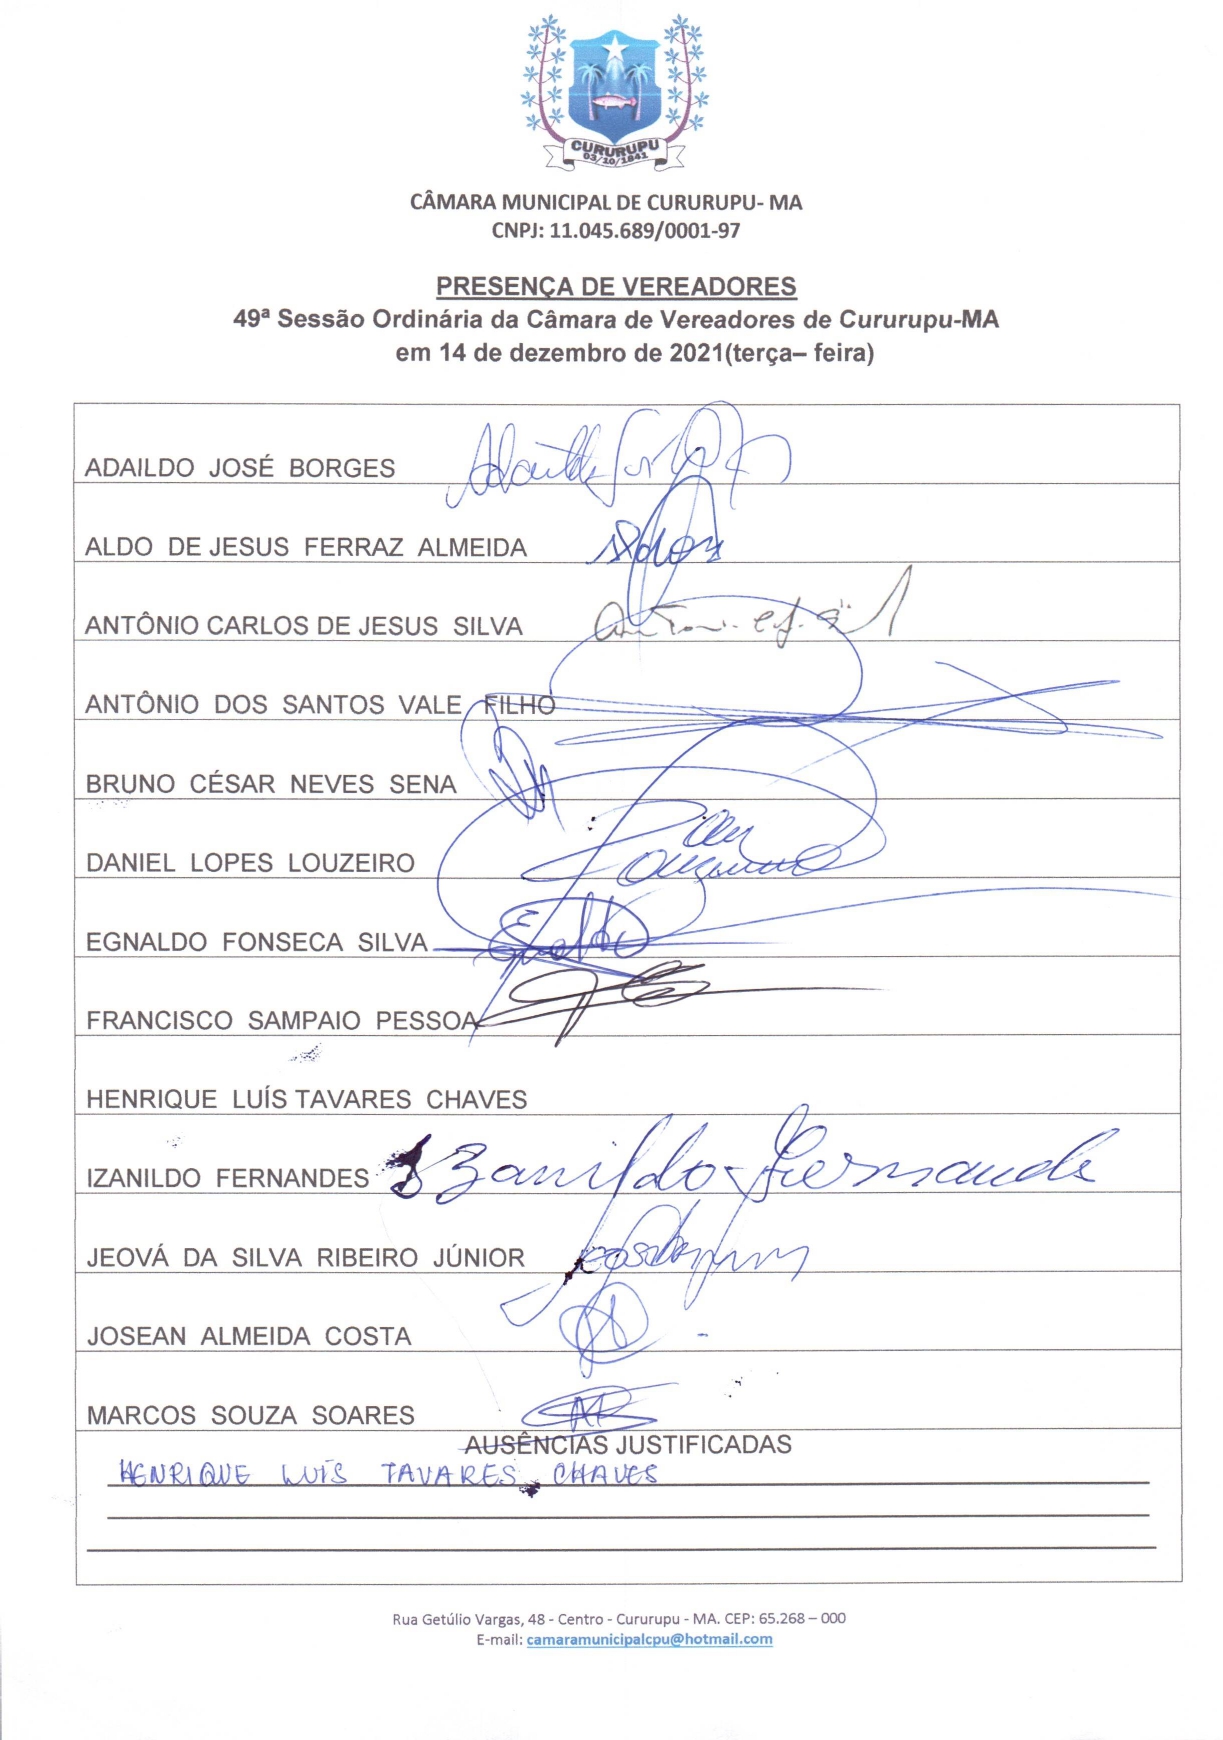 CURURUPU
03/10/1841
CÂMARA MUNICIPAL DE CURURUPU- MA
CNPJ: 11.045.689/0001-97
PRESENÇA DE VEREADORES
49ª Sessão Ordinária da Câmara de Vereadores de Cururupu-MA
em 14 de dezembro de 2021(terça– feira)
ADAILDO JOSÉ BORGES
ALDO DE JESUS FERRAZ ALMEIDA
ANTÔNIO CARLOS DE JESUS SILVA
ANTÔNIO DOS SANTOS VALE FILHO
BRUNO CÉSAR NEVES SENA
DANIEL LOPES LOUZEIRO
EGNALDO FONSECA SILVA
FRANCISCO SAMPAIO PESSOA
HENRIQUE LUÍS TAVARES CHAVES
IZANILDO FERNANDES Izanildo Fernandes
JEOVÁ DA SILVA RIBEIRO JÚNIOR
JOSEAN ALMEIDA COSTA
MARCOS SOUZA SOARES
AUSÊNCIAS JUSTIFICADAS
HENRIQUE LUÍS TAVARES CHAVES
Rua Getúlio Vargas, 48 - Centro - Cururupu - MA. CEP: 65.268 – 000
E-mail: camaramunicipalcpu@hotmail.com